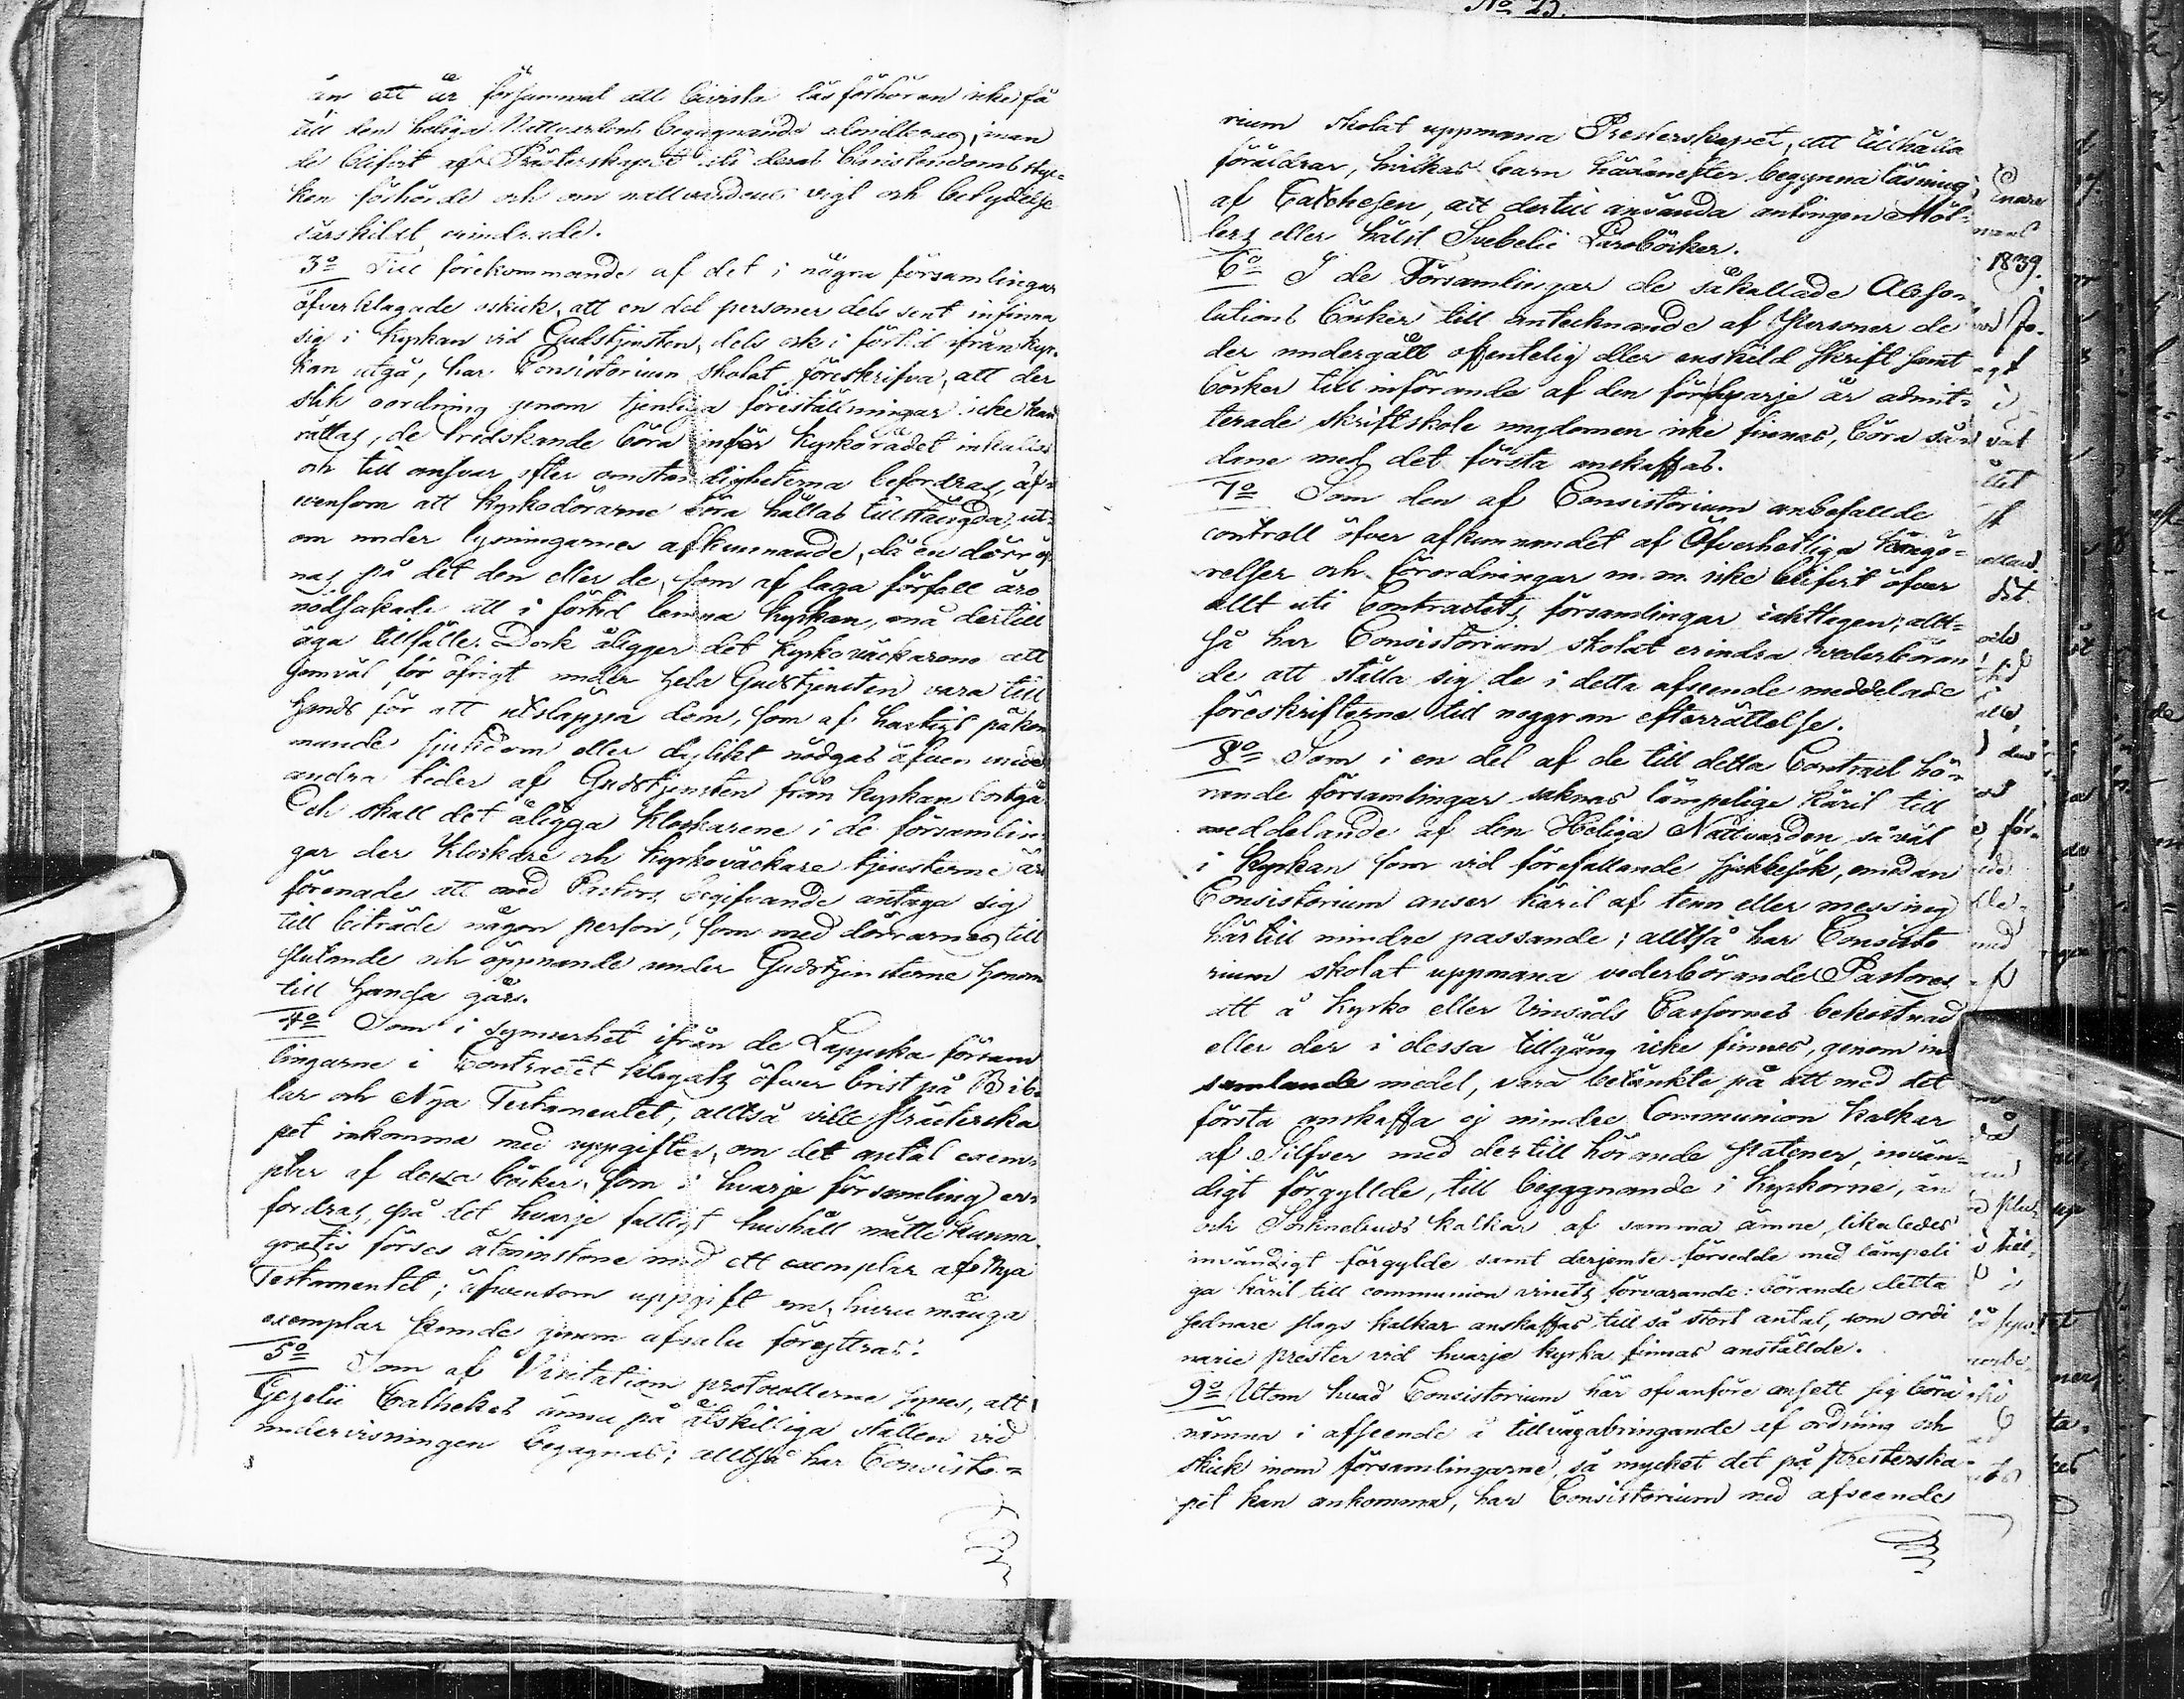 än ett år försummat att bivista läsförhören icke få
till den heliga Nattvardens begagnande admitteras, innan
de blifvit af Presterskapet uti deras Christendoms styc-
ken förhörde och om nattvardens vigt och betydelse
särskildt erindrade.
3o Till förekommande af det i några församlingar
öfverklagade oskick, att en del personer dels sent infinna
sig i kyrkan vid Gudstjensten, dels ock i förtid ifrån kyr-
kan utgå, har Consistorium skolat föreskrifva, att der
slik oordning genom tjenliga föreställningar icke kan
rättas, de tredskande böra inför kyrkorådet inkallas
och till ansvar efter omständigheterna befordras, äf-
vensom att kyrkodörarne böra hållas tillstängda, ut-
om under lysningarnes afkunnande, då en dörr öp
nas på det den eller de, som af laga förfall äro
nödsakade att i förtid lemna kyrkan, må dertill
äga tillfälle. Dock åligger det kyrkoväckarene att
jemväl för öfrigt under hela Gudstjensten vara till
hands för att utsläppa dem, som af hastigt påkom
mande sjukdom eller dylikt nödgas äfven under
andra tider af Gudstjensten från kyrkan bortgå
Och skall det åligga klockarene i de församlin-
gar der klockare och kyrkoväckare tjensterne är
förenade att med Pastors begifvande antaga sig
till biträde någon person, som med dörrarnes till
slutande och öppnande under Gudstjensterne honom
till handa går.
4o Som i synnerhet ifrån de Lappska försam
lingarne i Contractet klagats öfver brist på Bib-
lar och Nya Testamentet, alltså ville Presterska
pet inkomma med uppgifter, om det antal exem-
plar af dessa böcker, som i hvarje församling er-
fordras, på det hvarje fattigt hushåll måtte kunna
gratis förses åtminstone med ett exemplar af Nya
Testamentet; äfvensom uppgift om, huru många
exemplar kunde genom afsalu föryttras.
5o Som af Visitations protocollerne synes, att
Gezelii Cathekes ännu på åtskilliga ställen vid
undervisningen begagnas; alltså har Consisto-
No 23.
rium skolat uppmana Presterskapet, att tillhålla
föräldrar, hvilkas barn härefter begynna läsning
af Catechesen, att dertill använda antingen Möl-
lers eller hälst Svebelii Läroböcker.
6o I de Församlingar de såkallade Absso-
lutions böcker till antecknande af Personer de
der undergått offentelig eller enskild skrift samt
böcker till införande af den för hvarje år admit-
terade skriftskole ungdomen icke finnas, böra så-
dane med det första anskaffas.
7o Som den af Consistorium anbefallde
controll öfver afkunnandet af Öfverhetliga kungö-
relser och förordningar m.m. icke blifvit öfver
allt uti Contractets församlingar iakttagen; allt-
så har Consistorium skolat erindra vederböran
de att ställa sig de i detta afseende meddelade
föreskrifterne till noggran efterrättelse.
8o Som i en del af de till detta Contract hö-
rande församlingar saknas lämpelige käril till
meddelande af den Heliga Nattvarden, så väl
i kyrkan som vid förefallande sjukbesök, emedan
Consistorium anser käril af tenn eller messing
härtill mindre passande; alltså har Consisto
rium skolat uppmana vederbörande Pastores
att å kyrko eller Vinsäds Cassornes bekostnad
eller der i dessa tillgång icke finnes, genom in
samlande medel, vara betänkte på att med det
första anskaffa ej mindre Communion kalkar
af Silfver med dertill hörande Patener, invän-
digt förgyllde, till begagnande i kyrkorne, än
och Socknebuds kalkar af samma ämne, likaledes
invändigt förgylde samt derjemte försedde med lämpeli
ga käril till communion vinets förvarande: börande detta
sednare slags kalkar anskaffas till så stort antal, som ordi
narie prester vid hvarje kyrka finnas anställde.
9o Utom hvad Consistorium här ofvanföre ansett sig böra
nämna i afseende å tillvägabringande af ordning och
skick inom församlingarne, så mycket det på presterska-
pet kan ankomma, har Consistorium med afseende
1839.